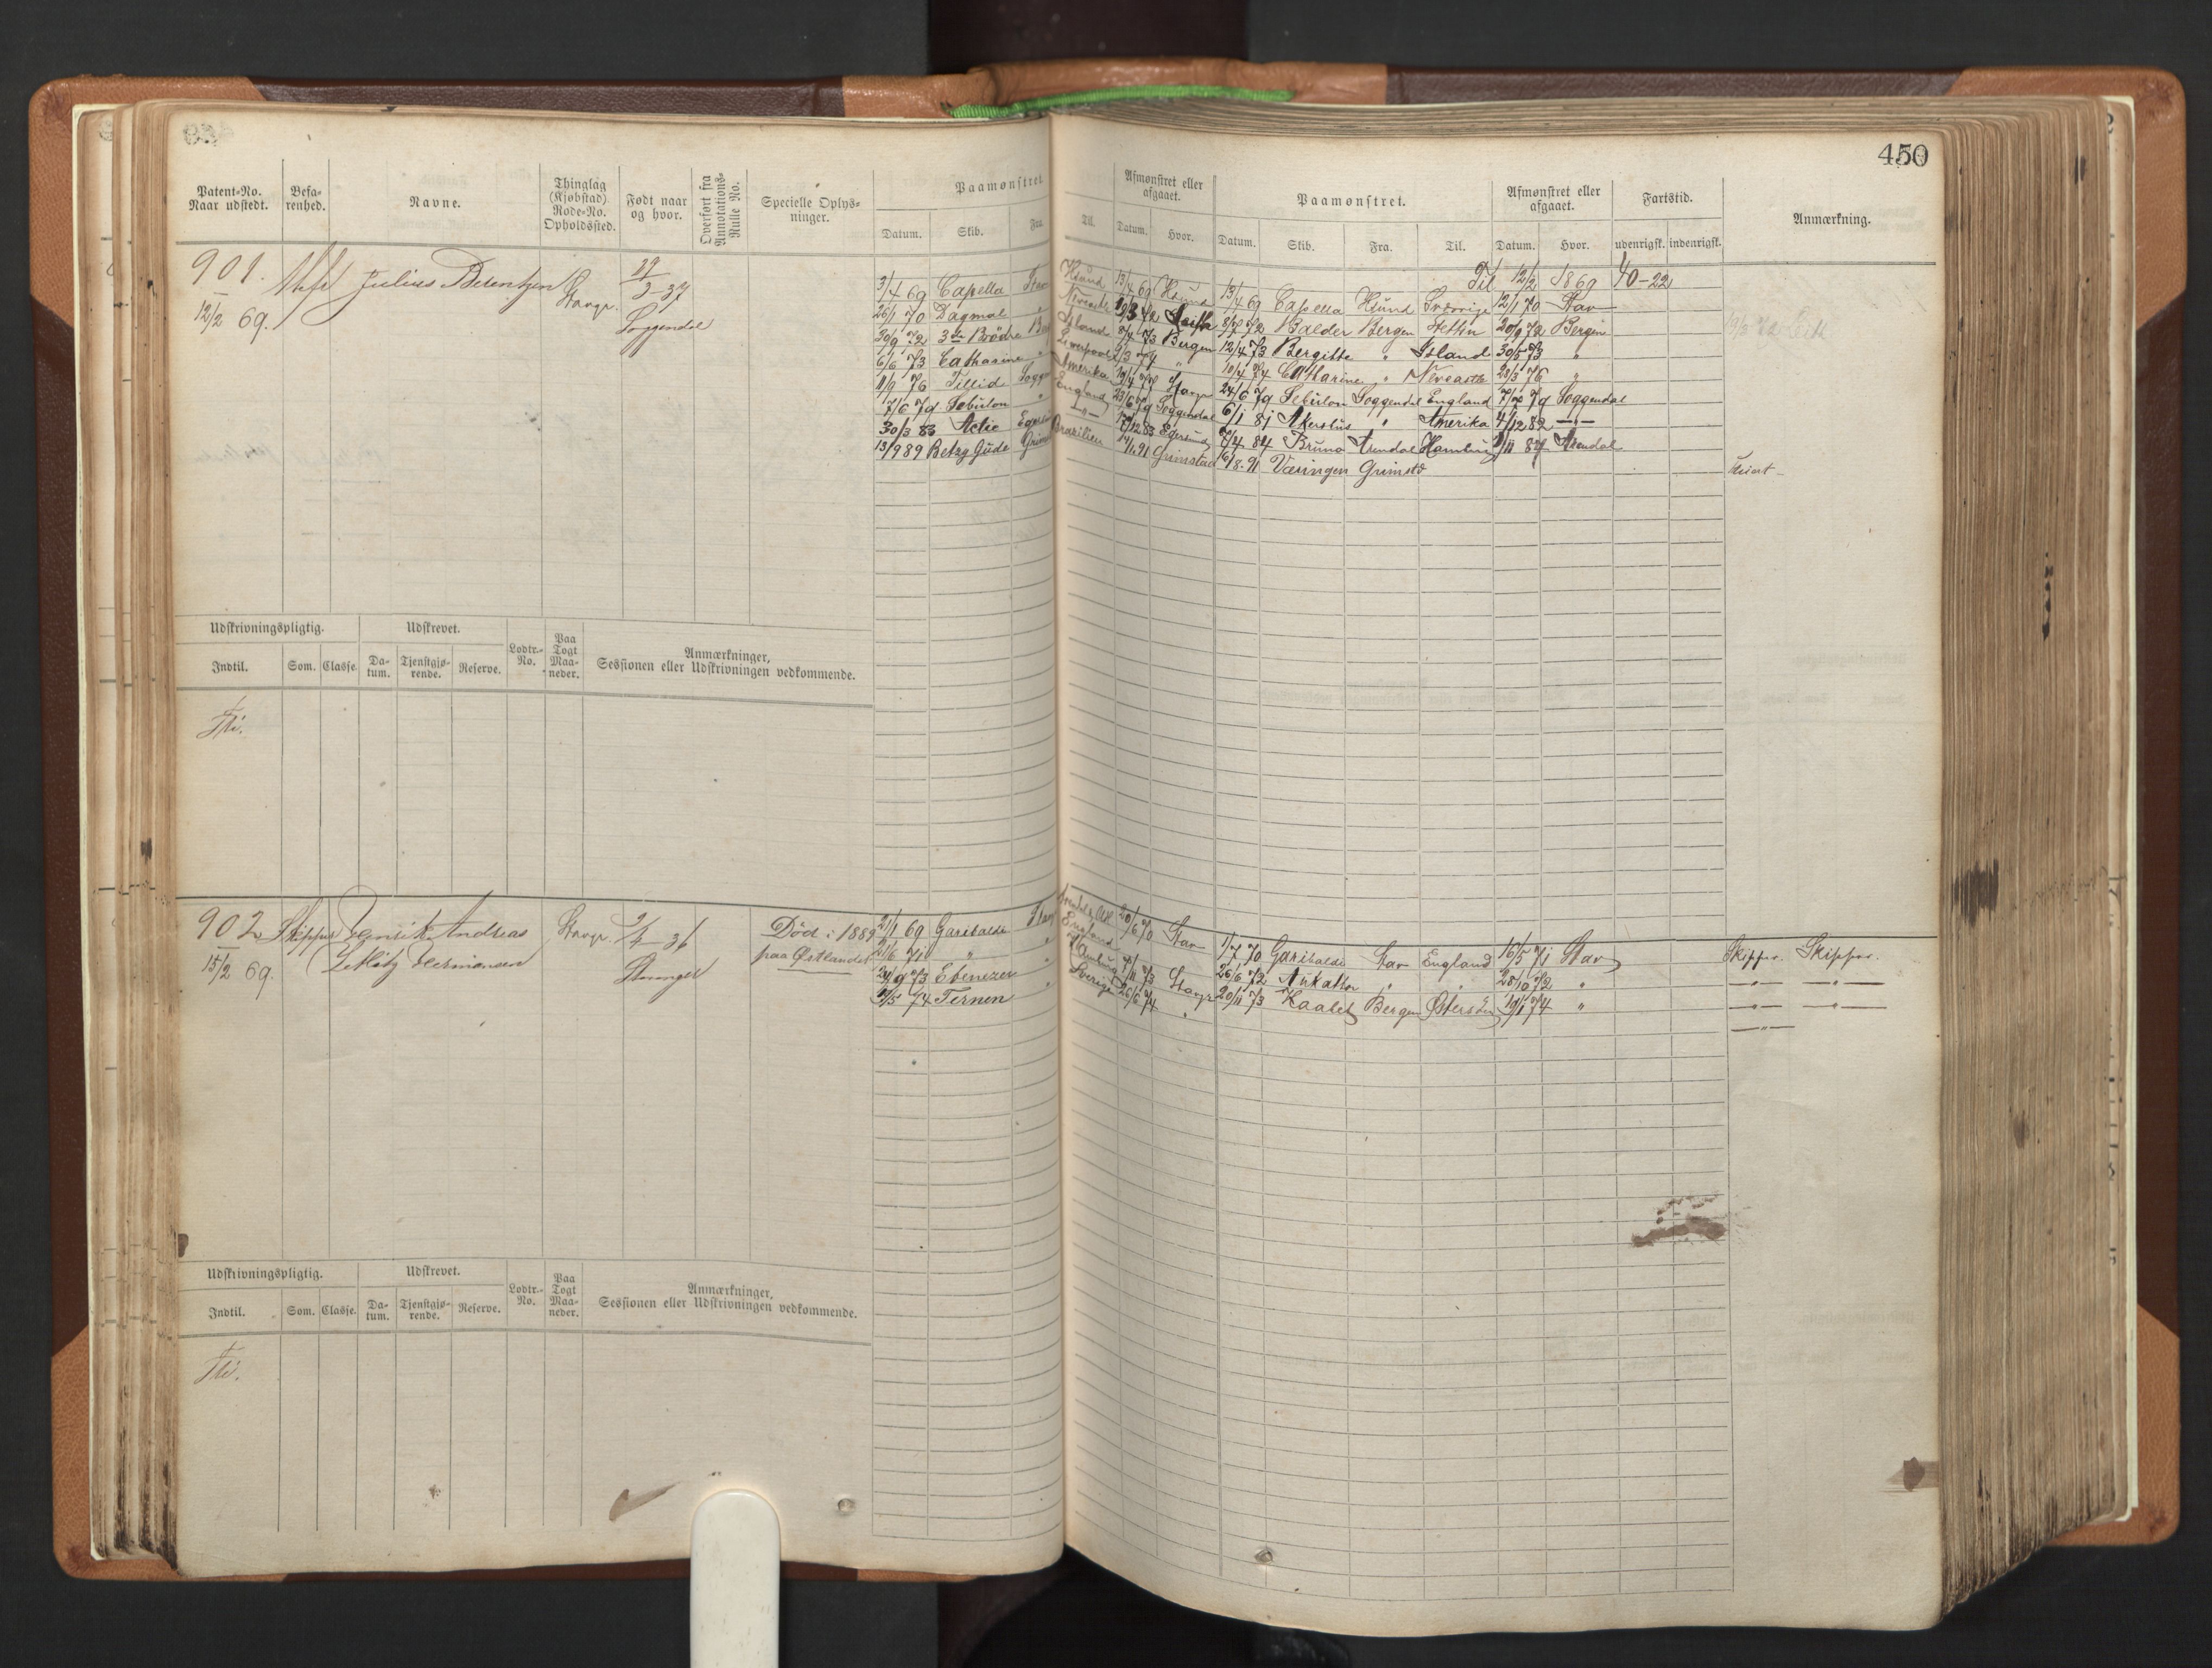 450
Patent-No. Naar udstedt. Befa-renhed. Navne. Thinglag (Kjøbstad) Rode-No. Opholdssted. Født naar og hvor. Overført fra Annotations-Rulle No. Specielle Oplys-ninger. Paamønstret. Afmønstret eller afgaaet. Paamønstret. Afmønstret eller afgaaet. Fartstid. Anmærkning.
Datum. Skib. Fra. Til. Datum. Hvor. Datum. Skib. Fra. Til. Datum. Hvor. udenrigsk. indenrigsk.
Til 12/2 1869 40-22
901. Julius Berentzen Stavgr. 29/3-37
12/2 69. Soggendal
3/4 69 Capella 13/4 69 13/4 69 Capella Hsund Sverrige 12/1 70 Stav
26/1 70 Dagmal " 19/3 72 Leith 8/7 72 Balder Bergen Stettin 20/9 72 Bergen
30/9 72 3de Brødre Island 8/4 73 Bergen 12/4 73 Bergitte " Island 30/5 73 "
6/6 73 Catharine " Liverpool 2/3 74 " 10/4 74 Catharine " Newcastle 28/3 76 "
11/9 76 Tillid Amerika 19/4 77 Stavgr 24/6 79 Sebulon Soggendal England 7/7 79 Soggendal
7/6 79 Sebulon " England 23/6 79 Soggendal 6/1 81 Akershus " Amerika 4/12 82 -"-
30/3 83 Activ -"- 17/12 83 Egersund 7/4 84 Bruno Arendal Hamburg 2/11 84 Arendal
13/9 89 Betzy Gude Brasilien 14/1 91 Grimstad 16/8.91 Væringen Grimstd
Udskrivningspligtig. Udskrevet. Lodtr.-No. Paa Togt Maa-neder. Anmærkninger, Sessionen eller Udskrivningen vedkommende.
Indtil. Som. Classe. Da-tum. Tjenstgjø-rende. Reserve.
Fri.
902 Skipper Henrik Andreas Stavgr. 2/2 36 Død i 1889
15/2 69. Zetlitz Hermansen Stavanger paa Østlandet
21/1 69 Garibaldi Stavg 20/6 70 Stav 1/7 70 Garibaldi Stav England 16/5 71 Stav Skipper. Skipper.
21/6 71 " " England 26/6 72 " " 28/10 72 " -"- -"-
24/9 73 Ebenezer " Hamburg 4/11 73 Stavgr 20/11 73 Bergen Østersøen 19/1 74 " -"- -"-
2/5 74 Ternen " Sverige 26/6 74 " -"-
Udskrivningspligtig. Udskrevet. Lodtr.-No. Paa Togt Maa-neder. Anmærkninger, Sessionen eller Udskrivningen vedkommende.
Indtil. Som. Classe. Da-tum. Tjenstgjø-rende. Reserve.
Fri.